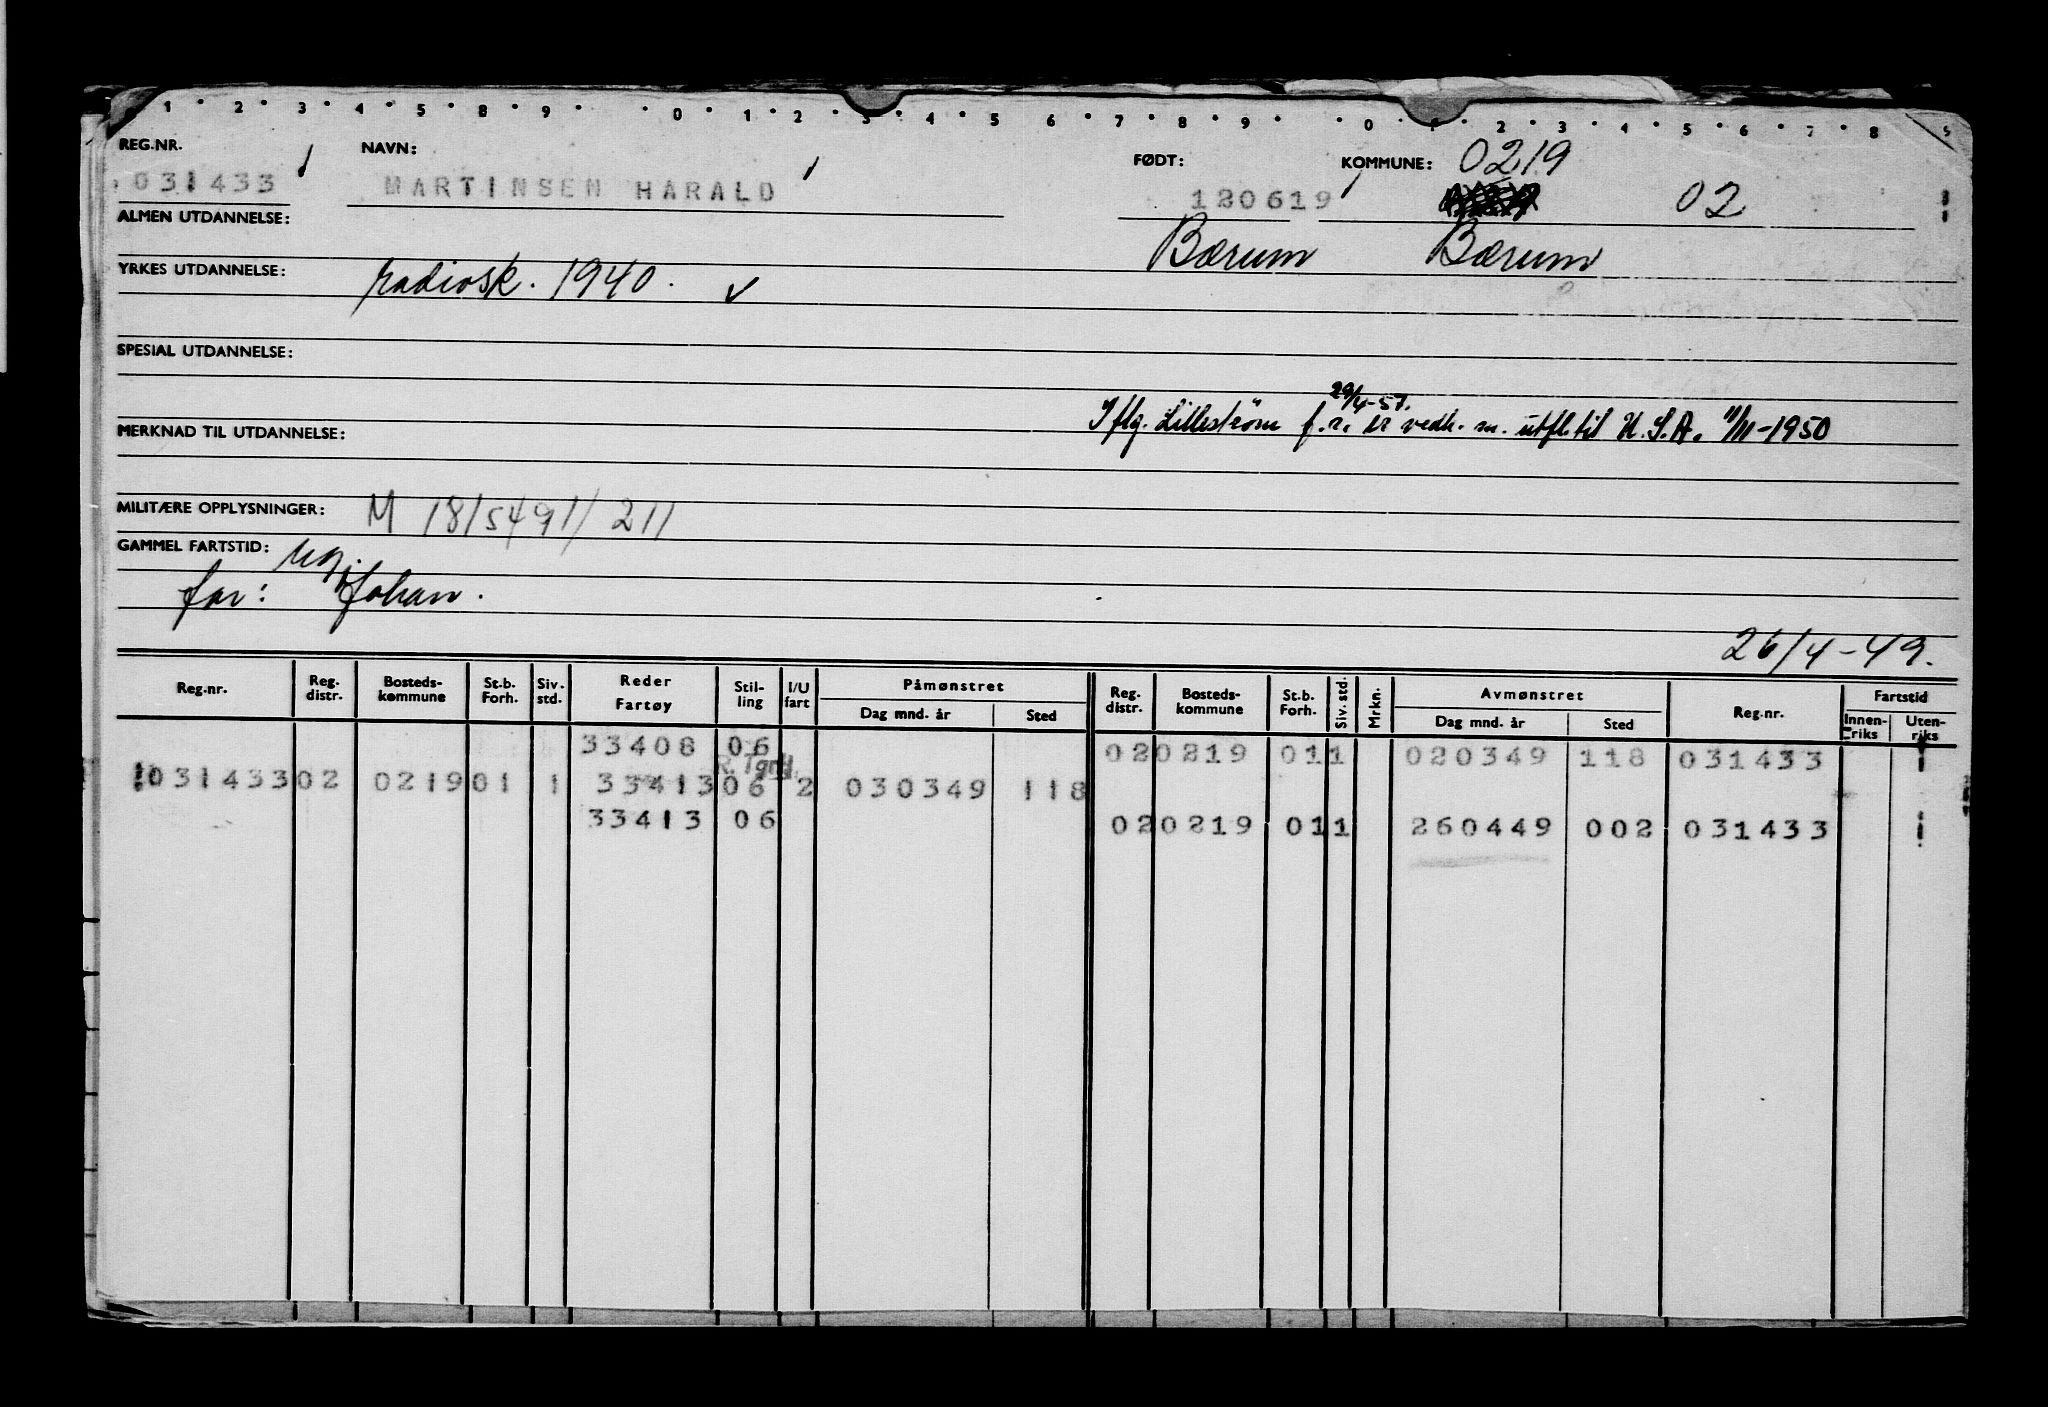 1 · 2 · 3 · 4 · 5 · 8 · 9 · · 0 · 1 · 2 · 3 · 4 · 5 · 6 · 7 · 8 · 9 · · 0 · 1 · 2 · 3 · 4 · 5 · 6 · 7 · 8 9
REG.NR. NAVN: FØDT: KOMMUNE: 0219
031433 MARTINSEN HARALD 120619 02
ALMEN UTDANNELSE: Bærum Bærum
YRKES UTDANNELSE: radiosk. 1940. ✓
SPESIAL UTDANNELSE:
29/4-57.
Iflg. Lillestrøm f.r. er vedk. m. utfl. til U.S.A. 11/11-1950
MERKNAD TIL UTDANNELSE:
MILITÆRE OPPLYSNINGER: M 18/5491/211
GAMMEL FARTSTID: ug.
far: Johan.
26/4-49.
Reg.nr. Reg. distr. Bosteds-kommune St.b. Forh. Siv. std. Reder Fartøy Stil-ling I/U fart Påmønstret Dag mnd. år Sted Reg. distr. Bosteds-kommune St.b. Forh. Siv. std. Mrkn. Avmønstret Dag mnd. år Sted Reg.nr. Fartstid Innen-riks Uten-riks
33408 06 02 0219 01 1 020349 118 031433
R. Tgrf.
031433 02 0219 01 1 33413 06 2 030349 118
33413 06 02 0219 01 1 260449 002 031433